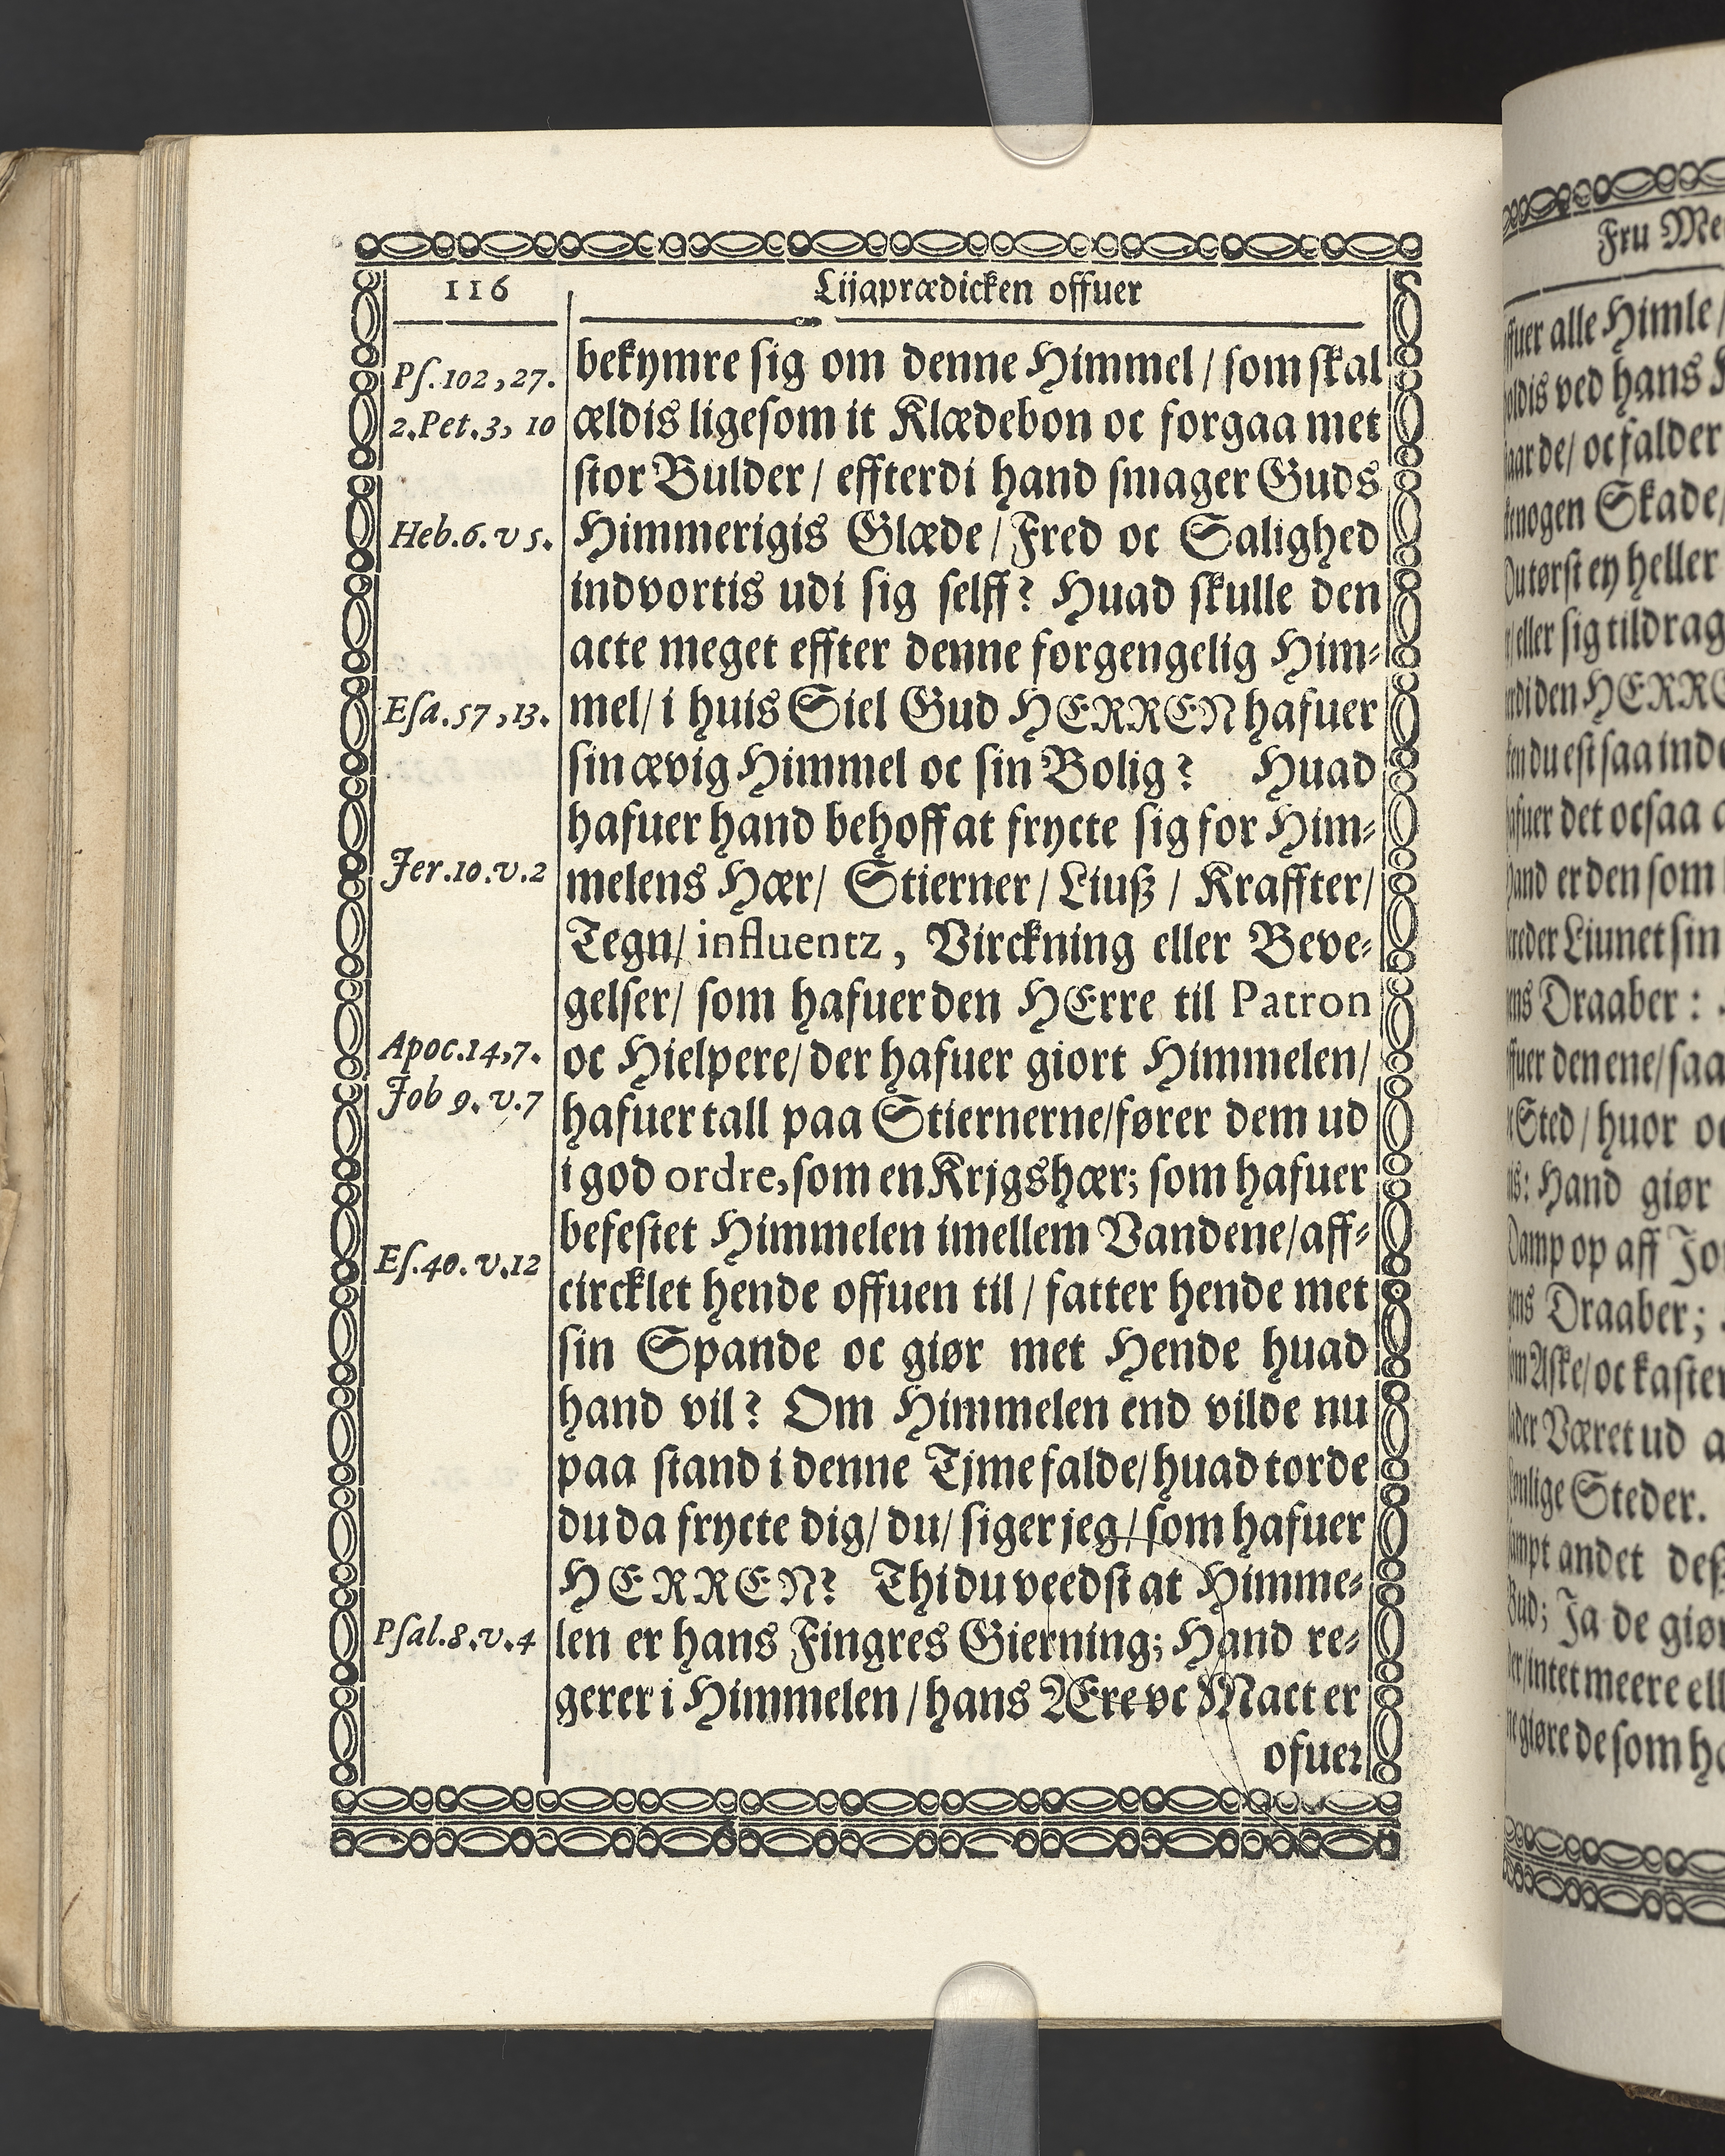 116
Lijaprædicken offuer
Ps. 102, 27.
2. Pet. 3, 10
Heb. 6. v 5.
Esa. 57, 13.
Jer. 10. v. 2
Apoc. 14, 7.
Job 9. v. 7
Es. 40. v. 12
Psal. 8. v. 4
bekymre sig om denne Himmel / som skal
ældis ligesom it Klædebon oc forgaa met
stor Bulder / effterdi hand smager Guds
Himmerigis Glæde / Fred oc Salighed
indvortis udi sig selff? Huad skulle den
acte meget effter denne forgengelig Him-
mel / i huis Siel Gud HERREN hafuer
sin ævig Himmel oc sin Bolig? Huad
hafuer hand behoff at frycte sig for Him-
melens Hær / Stierner / Liuß / Kraffter /
Tegn / influentz, Virckning eller Beve-
gelser / som hafuer den HErre til Patron
oc Hielpere / der hafuer giort Himmelen /
hafuer tall paa Stiernerne / fører dem ud
i god ordre, som en Krjgshær; som hafuer
befestet Himmelen imellem Vandene / aff-
circklet hende offuen til / fatter hende met
sin Spande oc giør met Hende huad
hand vil? Om Himmelen end vilde nu
paa stand i denne Tjme falde / huad torde
du da frycte dig / du / siger jeg / som hafuer
HERREN? Thi du veedst at Himme-
len er hans Fingres Gierning; Hand re-
gerer i Himmelen / hans Ære oc Mact er
ofuer
Fru
ffuer alle Himle /
ved hans
de / oc falder
nogen Skade /
tørst ey heller
/ eller sig tildrag
den HERRE
du est saa ind
hafuer det ocsaa
Hand er den som
Liunet sin
Draaber :
den ene / saa
Sted / huor
Hand giør
Damp op aff
Draaber;
Aske / oc kaster
Været ud
Steder.
andet
Ja de giør
intet meere
giøre de som